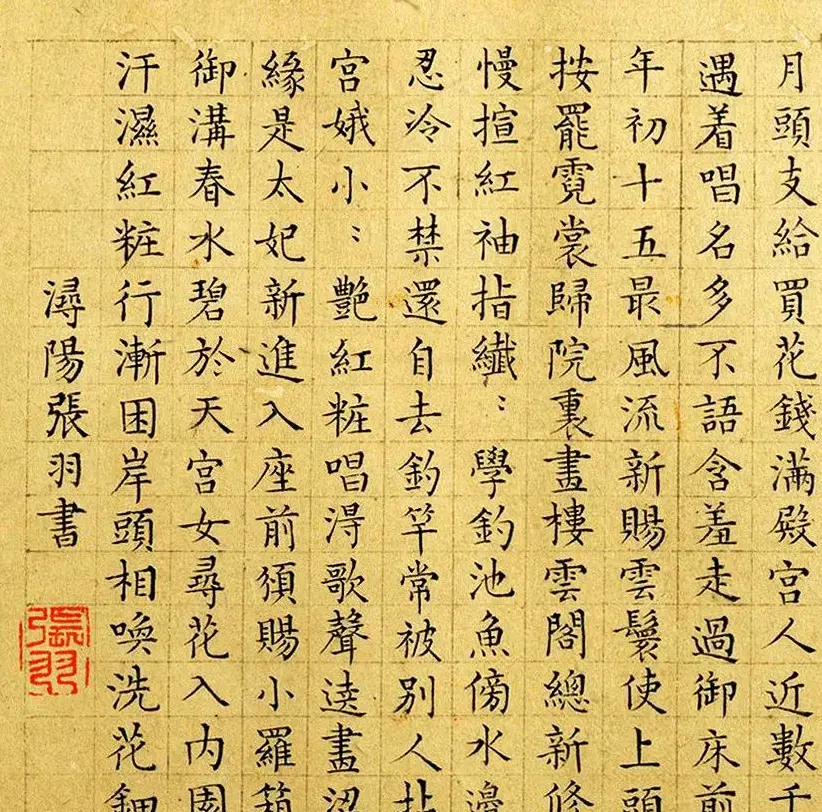 月頭支給買花錢滿殿宮人近數千
遇着唱名多不語含羞走過御床前
年初十五最風流新賜雲鬟使上頭
按罷霓裳歸院裏畫樓雲閣總新修
慢揎紅袖指纖〻學釣池魚傍水邊
忍冷不禁還自去釣竿常被別人
宮娥小〻艷紅粧唱淂歌聲遶畫梁
緣是太妃新進入座前頒賜小羅箱
御溝春水碧於天宮女尋花入內園
汗濕紅粧行漸困岸頭相喚洗花鈿
潯陽張羽書
張羽